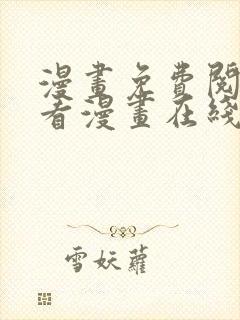 漫畫免費閱
看漫畫在綫
雪妖蘿